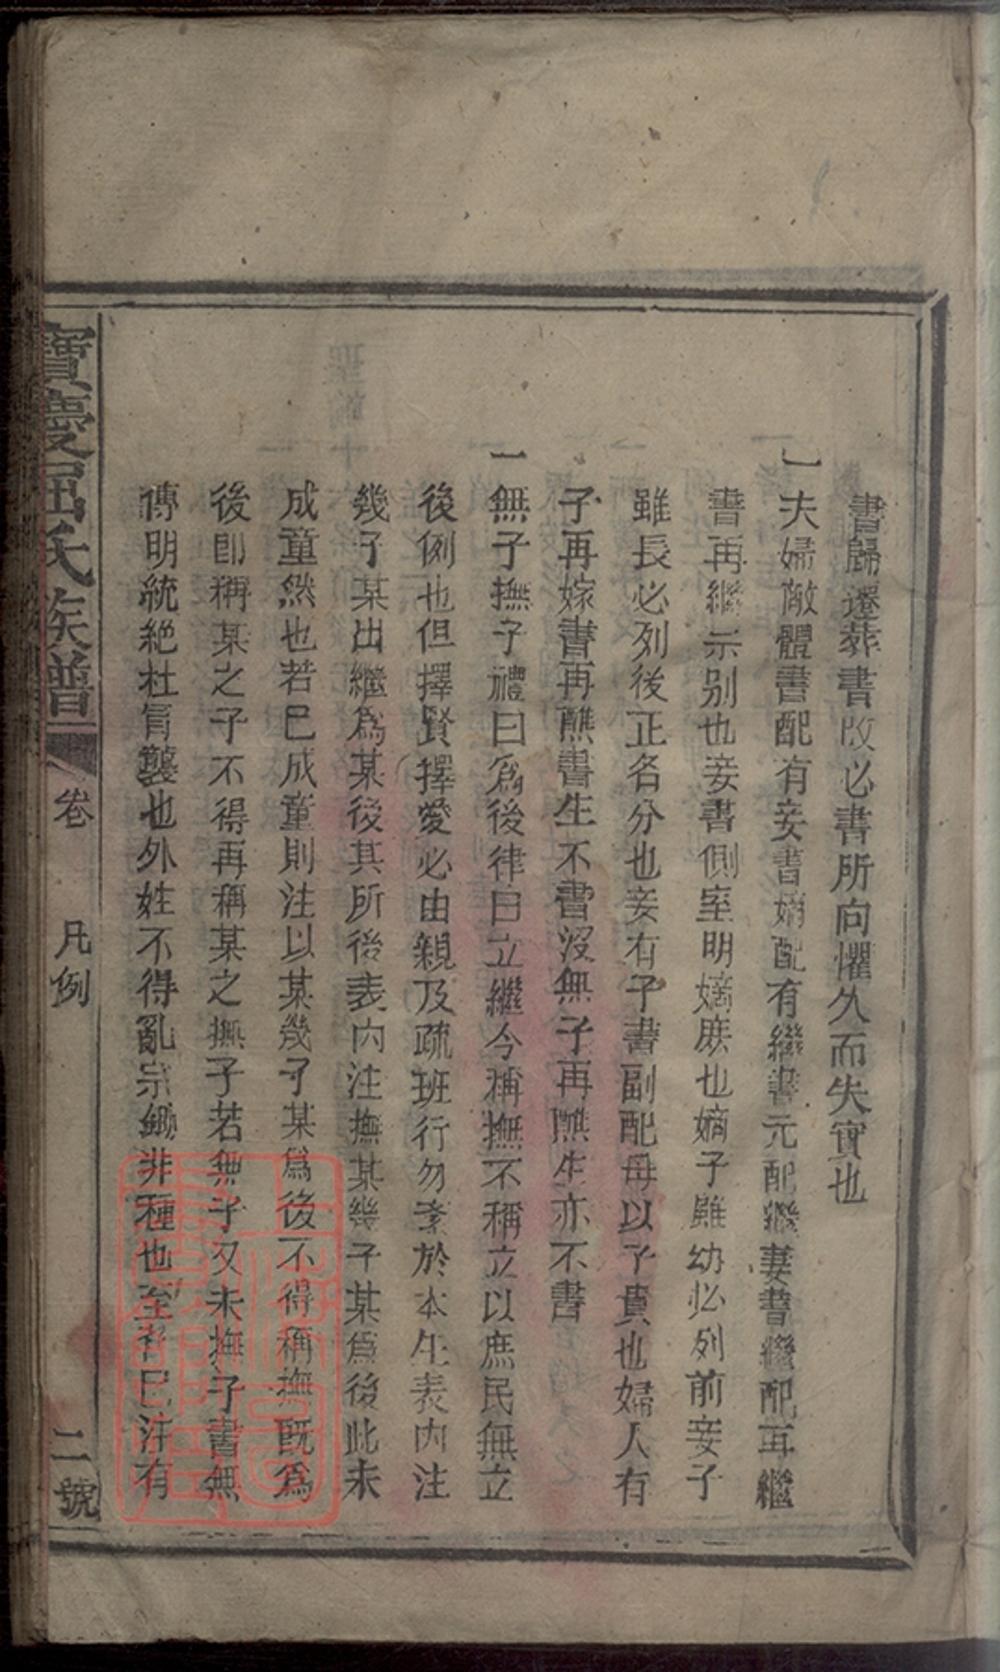 書歸遷葬書改必書所向懼久而失實也
一夫婦敵體書配有妾書嫡配有繼書元配繼妻書繼配再繼
書再繼示别也妾書側室明嫡庶也嫡子雖幼必列前妾子
雖長必列後正名分也妾有子書副配母以子貴也婦人有
子再嫁書再醮書生不書沒無子再醮生亦不書
一無子撫子禮曰爲後律曰立繼今稱撫不稱立以庶民無立
後例也但擇賢擇愛必由親及疏班行勿紊於本生表内注
幾子某出繼爲某後其所後表内注撫某幾子某爲後此未
成童然也若已成童則注以某幾子某爲後不得稱撫既爲
後卽稱某之子不得再稱某之撫子若無子又未撫子書無
傳明統絶杜冒襲也外姓不得亂宗鋤非種也至者已注有
寶慶屈氏族譜
卷
凡例
二號